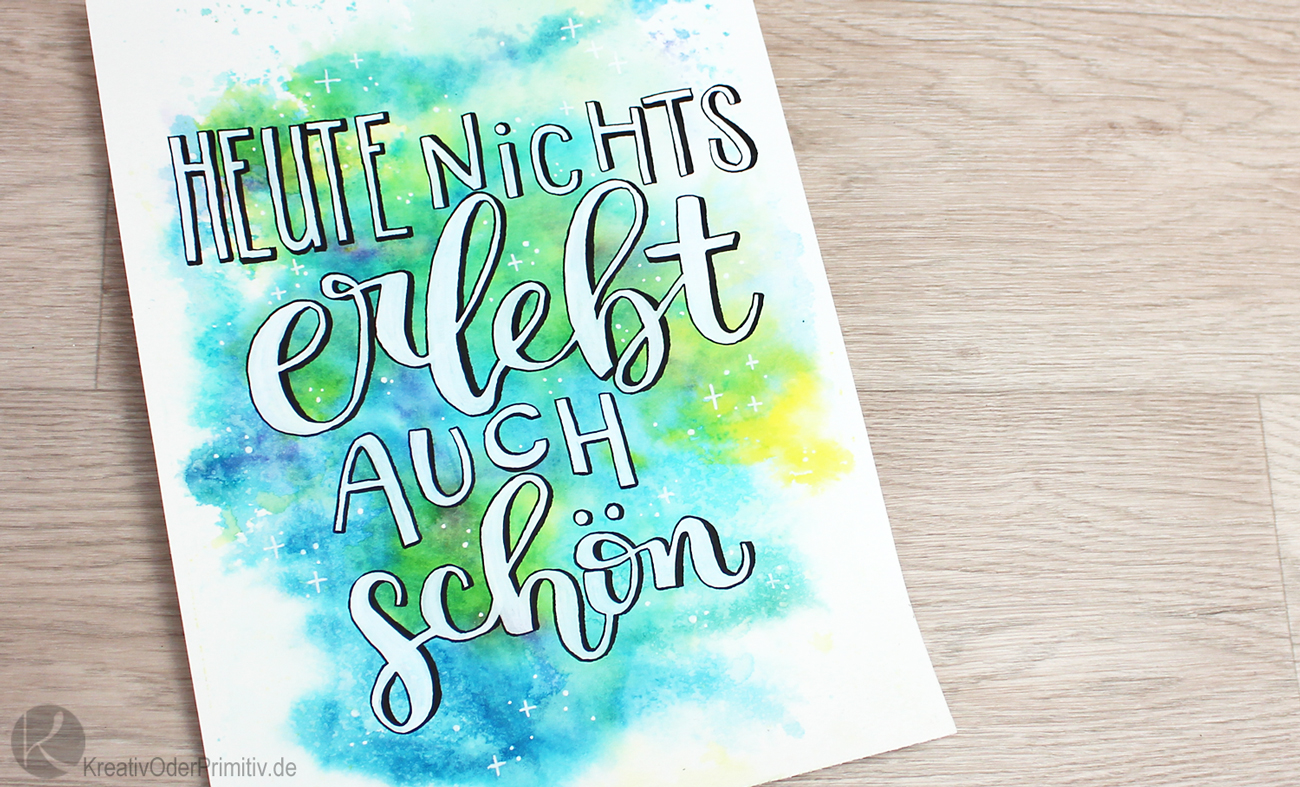 HEUTE NiCHTS
erlebt
AUCH
schön
KreativOderPrimitiv.de